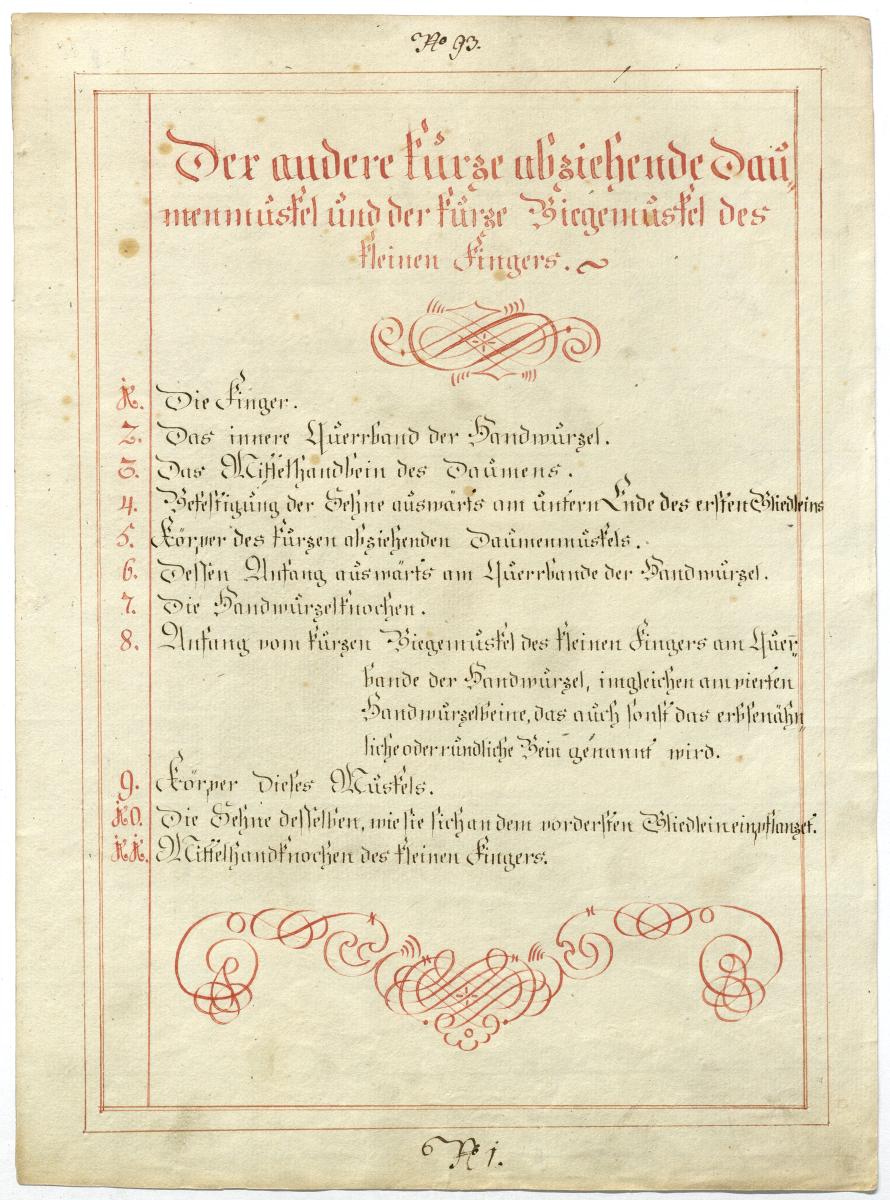 No 93.
Der andere kurze abziehende Dau„
menmuskel und der kurze Biegemuskel des
kleinen Fingers.
1. Die Finger.
2. Das innere Querrband der Handwurzel.
3. Das Mittelhandbein des Daumens.
4. Befestigung der Sehne auswärts am untern Ende des ersten Gliedleins
5. Körper des kurzen abziehenden Daumenmuskels.
6. Dessen Anfang auswärts am Querrbande der Handwurzel.
7. Die Handwurzelknochen.
8. Anfang vom kurzen Biegemuskel des kleinen Fingers am Querr„
bande der Handwurzel, imgleichen am vierten
Handwurzelbeine, das auch sonst das erbsenähn„
liche oder rundliche Bein genannt wird.
9. Körper dieses Muskels.
10. Die Sehne desselben, wie sie sich an dem vordersten Gliedlein einpflanzet.
11. Mittelhandknochen des kleinen Fingers.
No 1.